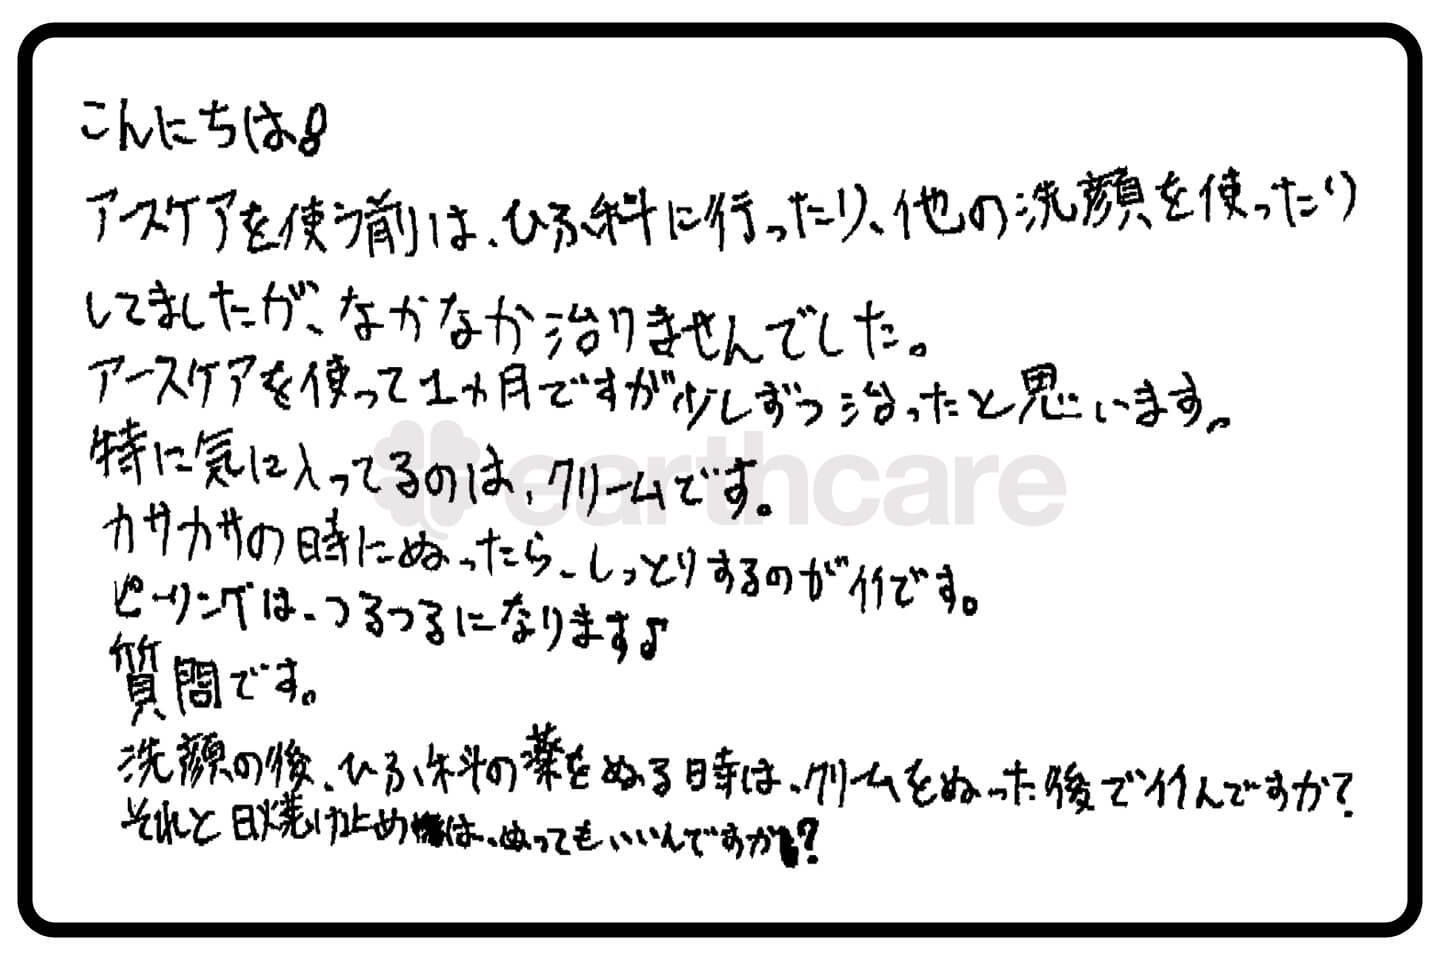 こんにちは!
アースケアを使う前は、ひふ科に行ったり、他の洗顔を使ったり
してましたが、なかなか治りませんでした。
アースケアを使って1ヵ月ですが少しずつ治ったと思います。
特に気に入ってるのは、クリームです。
earthcare
カサカサの時にぬったら、しっとりするのがイイです。
ピーリングは、つるつるになります♪
質問です。
洗顔の後、ひふ科の薬をぬる時は、クリームをぬった後でイイんですか?
それと日焼け止めは、ぬってもいいんですか?